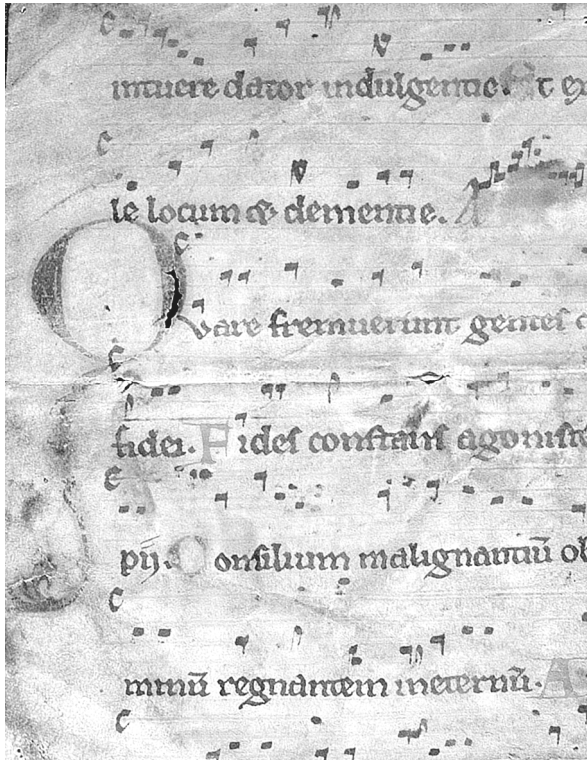 intuere dator indulgentie. Et ex
le locum &, clementie. A
Quare fremuerunt gentes c
fidei. Fides constans agonist
pij. Consilium malignantiū ob
minū regnantem ineternū. A